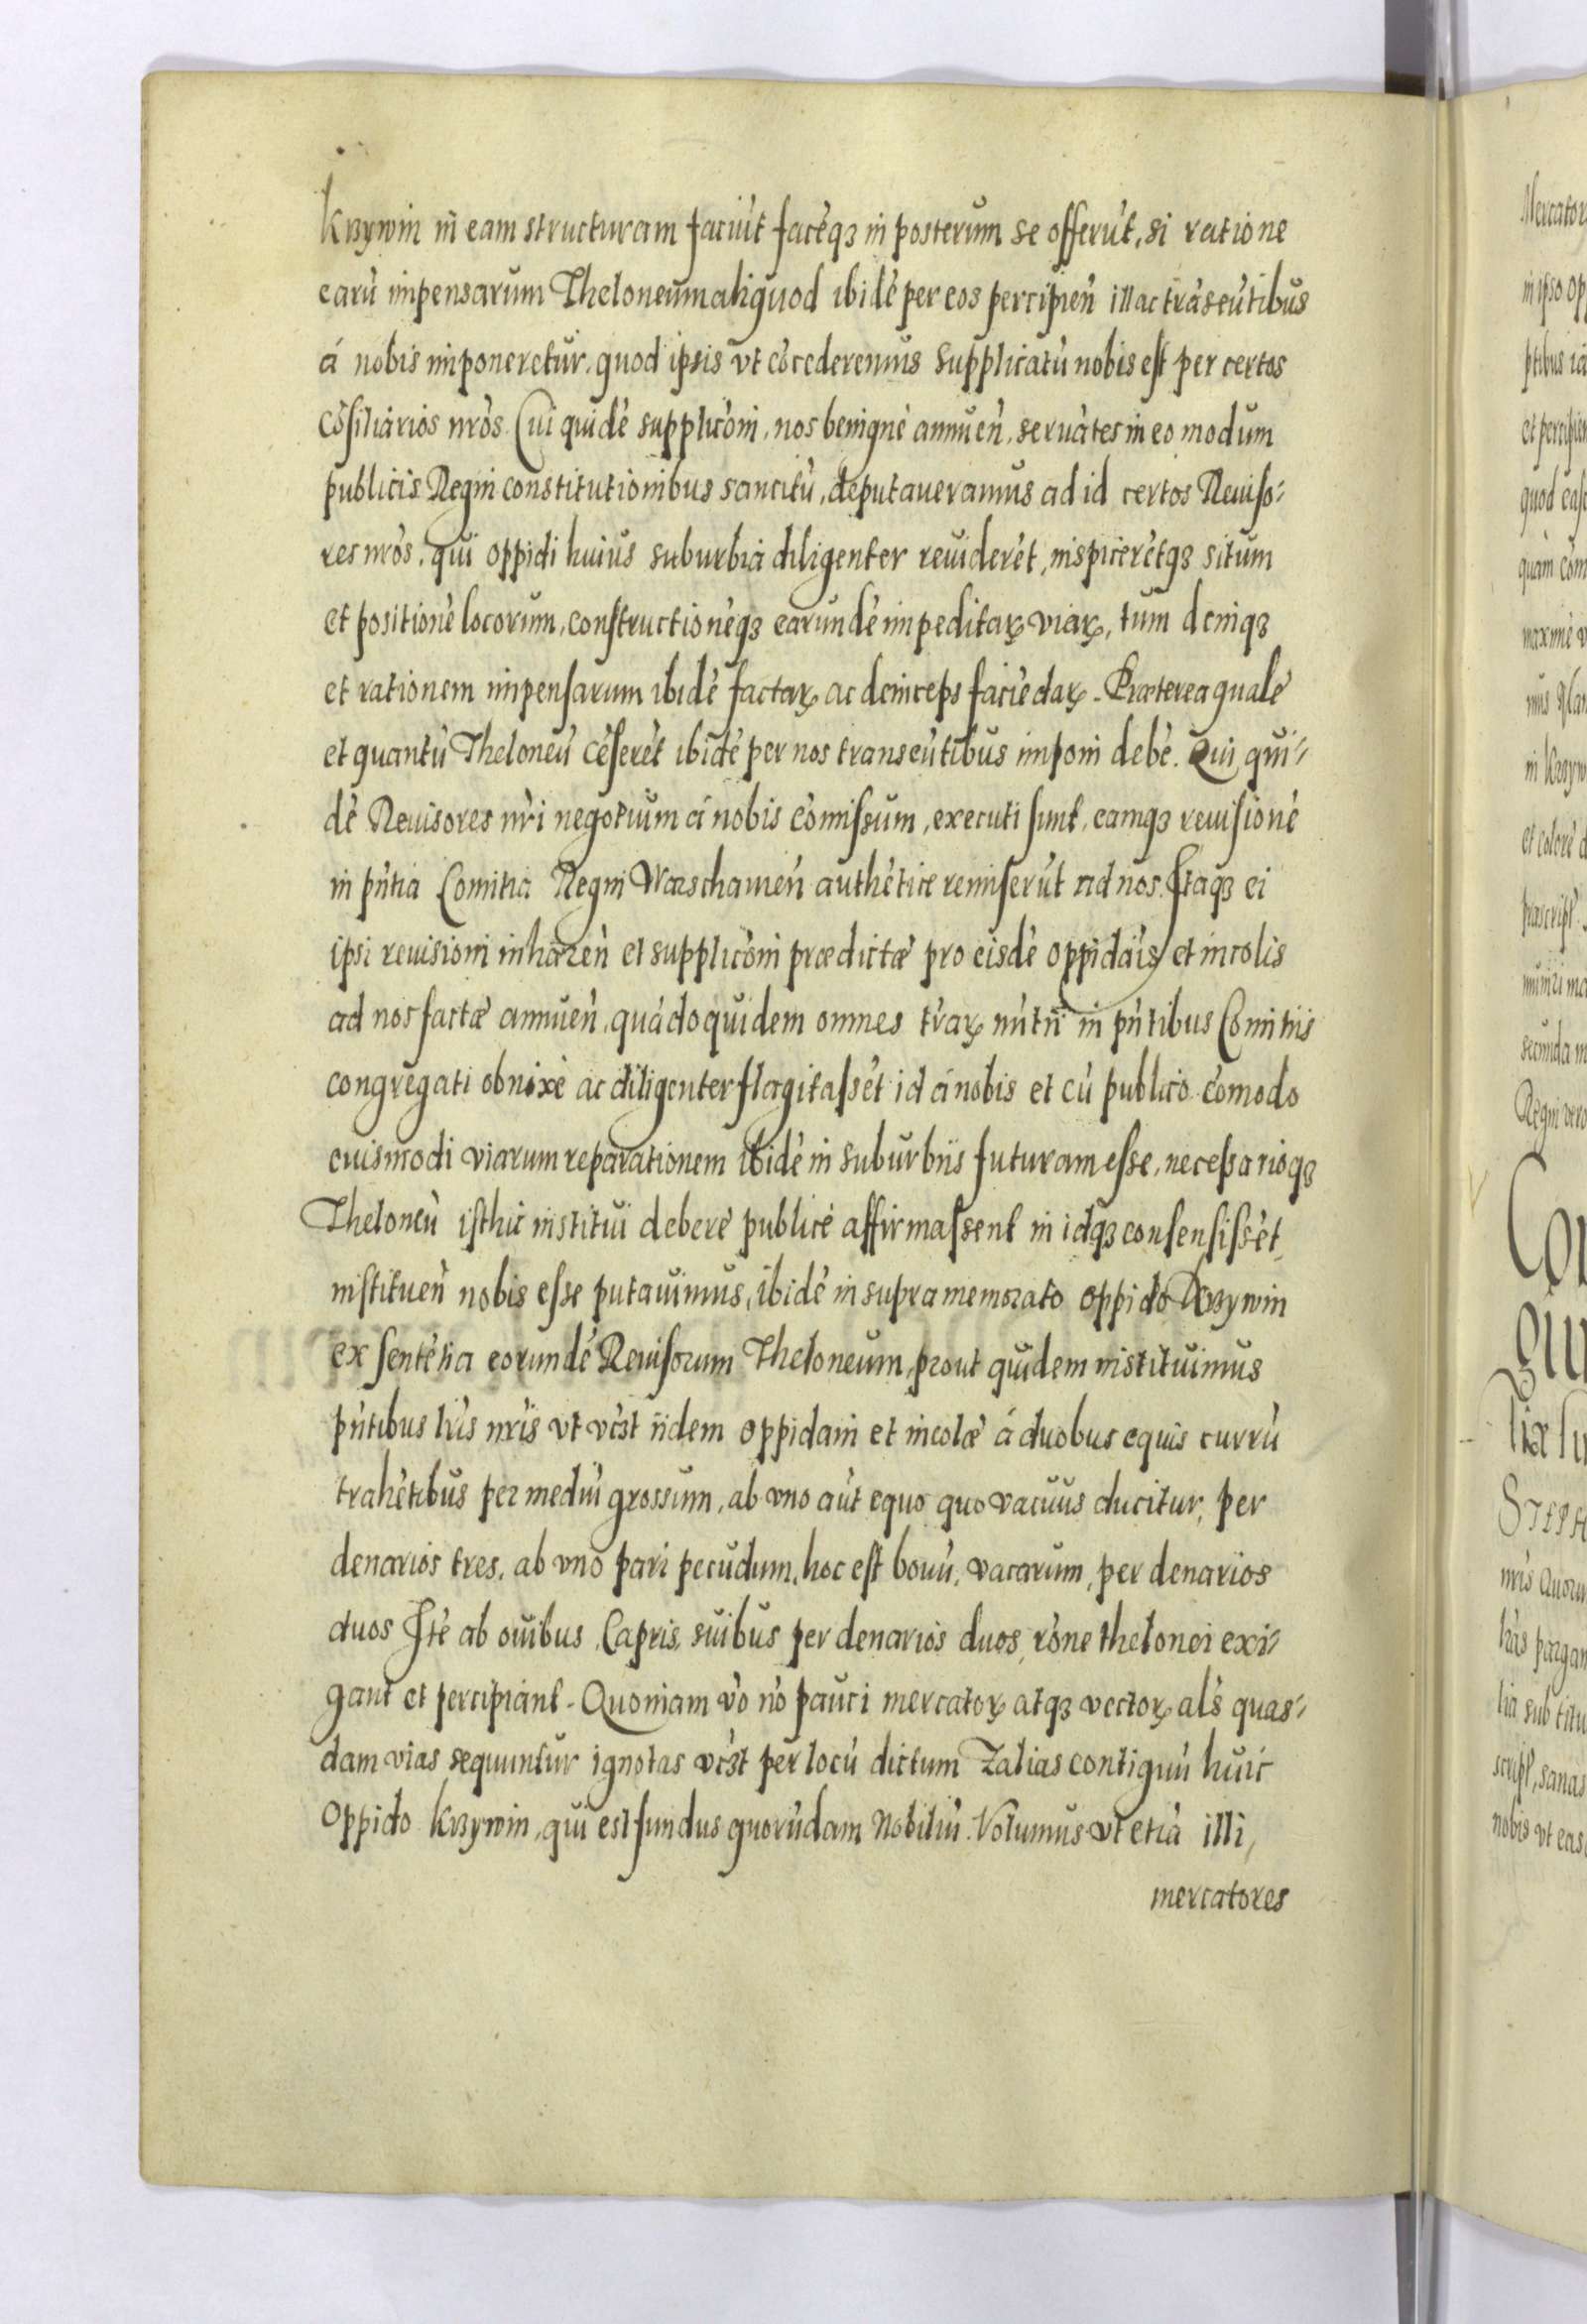 Krzywin in eam structuram faciūt facēqꝫ in posterum se offerūt, si ratione
earū impensarum Theloneum aliquod ibidē per eos percipień illac trāseūtibus
á nobis imponeretur, quod ipsis vt cōcederemus supplicatū nobis est per certos
cōsiliarios nrōs. Cui quidē supplicōni, nos benigne annueń, seruātes in eo modum
publicis Regni constitutionibus sancitū, deputaueramus ad id certos Reuiso⸗
res nrōs, qui oppidi huius suburbia diligenter reuiderēt, inspicerētqꝫ situm
et positionē locorum, constructionēqꝫ earundē impeditaꝝ viaꝝ, tum deniqꝫ
et rationem impensarum ibidē factaꝝ ac deinceps faciēdaꝝ. Præterea quale
et quantū Theloneū cēserēt ibidē per nos transeūtibus imponi debē. Qui qui⸗
dē Reuisores nrī negotium á nobis cōmissum, executi sunt, eamqꝫ reuisionē
in pn̄tia Comitia Regni Warschauień authētice remiserūt ad nos. Itaqꝫ ei
ipsi reuisioni inhæreń et supplicōni prædictæ pro eisdē oppidāis et incolis
ad nos factæ annueń, quādoquidem omnes tr̄aꝝ nūtii in pn̄tibus Comitiis
congregati obnixè ac diligenter flagitassēt id á nobis et cū publico cōmodo
euismodi viarum reparationem ibidē in suburbiis futuram esse, necessarioqꝫ
Theloneū isthic institui debere publicè affirmassent in idqꝫ consensissēt
institueń nobis esse putauimus, ibidē in supra memorato oppido Krzywin
ex sentētia eorundē Reuisorum Theloneum, prout quidem instituimus
pn̄tibus lr̄is nr̄is vt vc̄st iidem oppidani et incolæ á duobus equis currū
trahētibus per mediū grossum, ab vno aūt equo quo vacuus ducitur, per
denarios tres, ab vno pari pecudum, hoc est bouū, vacarum, per denarios
duos Itē ab ouibus, Capris, suibus per denarios duos, rōne thelonei exi⸗
gant et percipiant. Quoniam vō nō pauci mercatoꝝ atqꝫ vectoꝝ al̄s quas⸗
dam vias sequuntur ignotas vc̄st per locū dictum Zalias contiguū huic
Oppido Krzywin, qui est fundus quorūdam Nobiliū. Volumus vt etiā illi,
mercatores